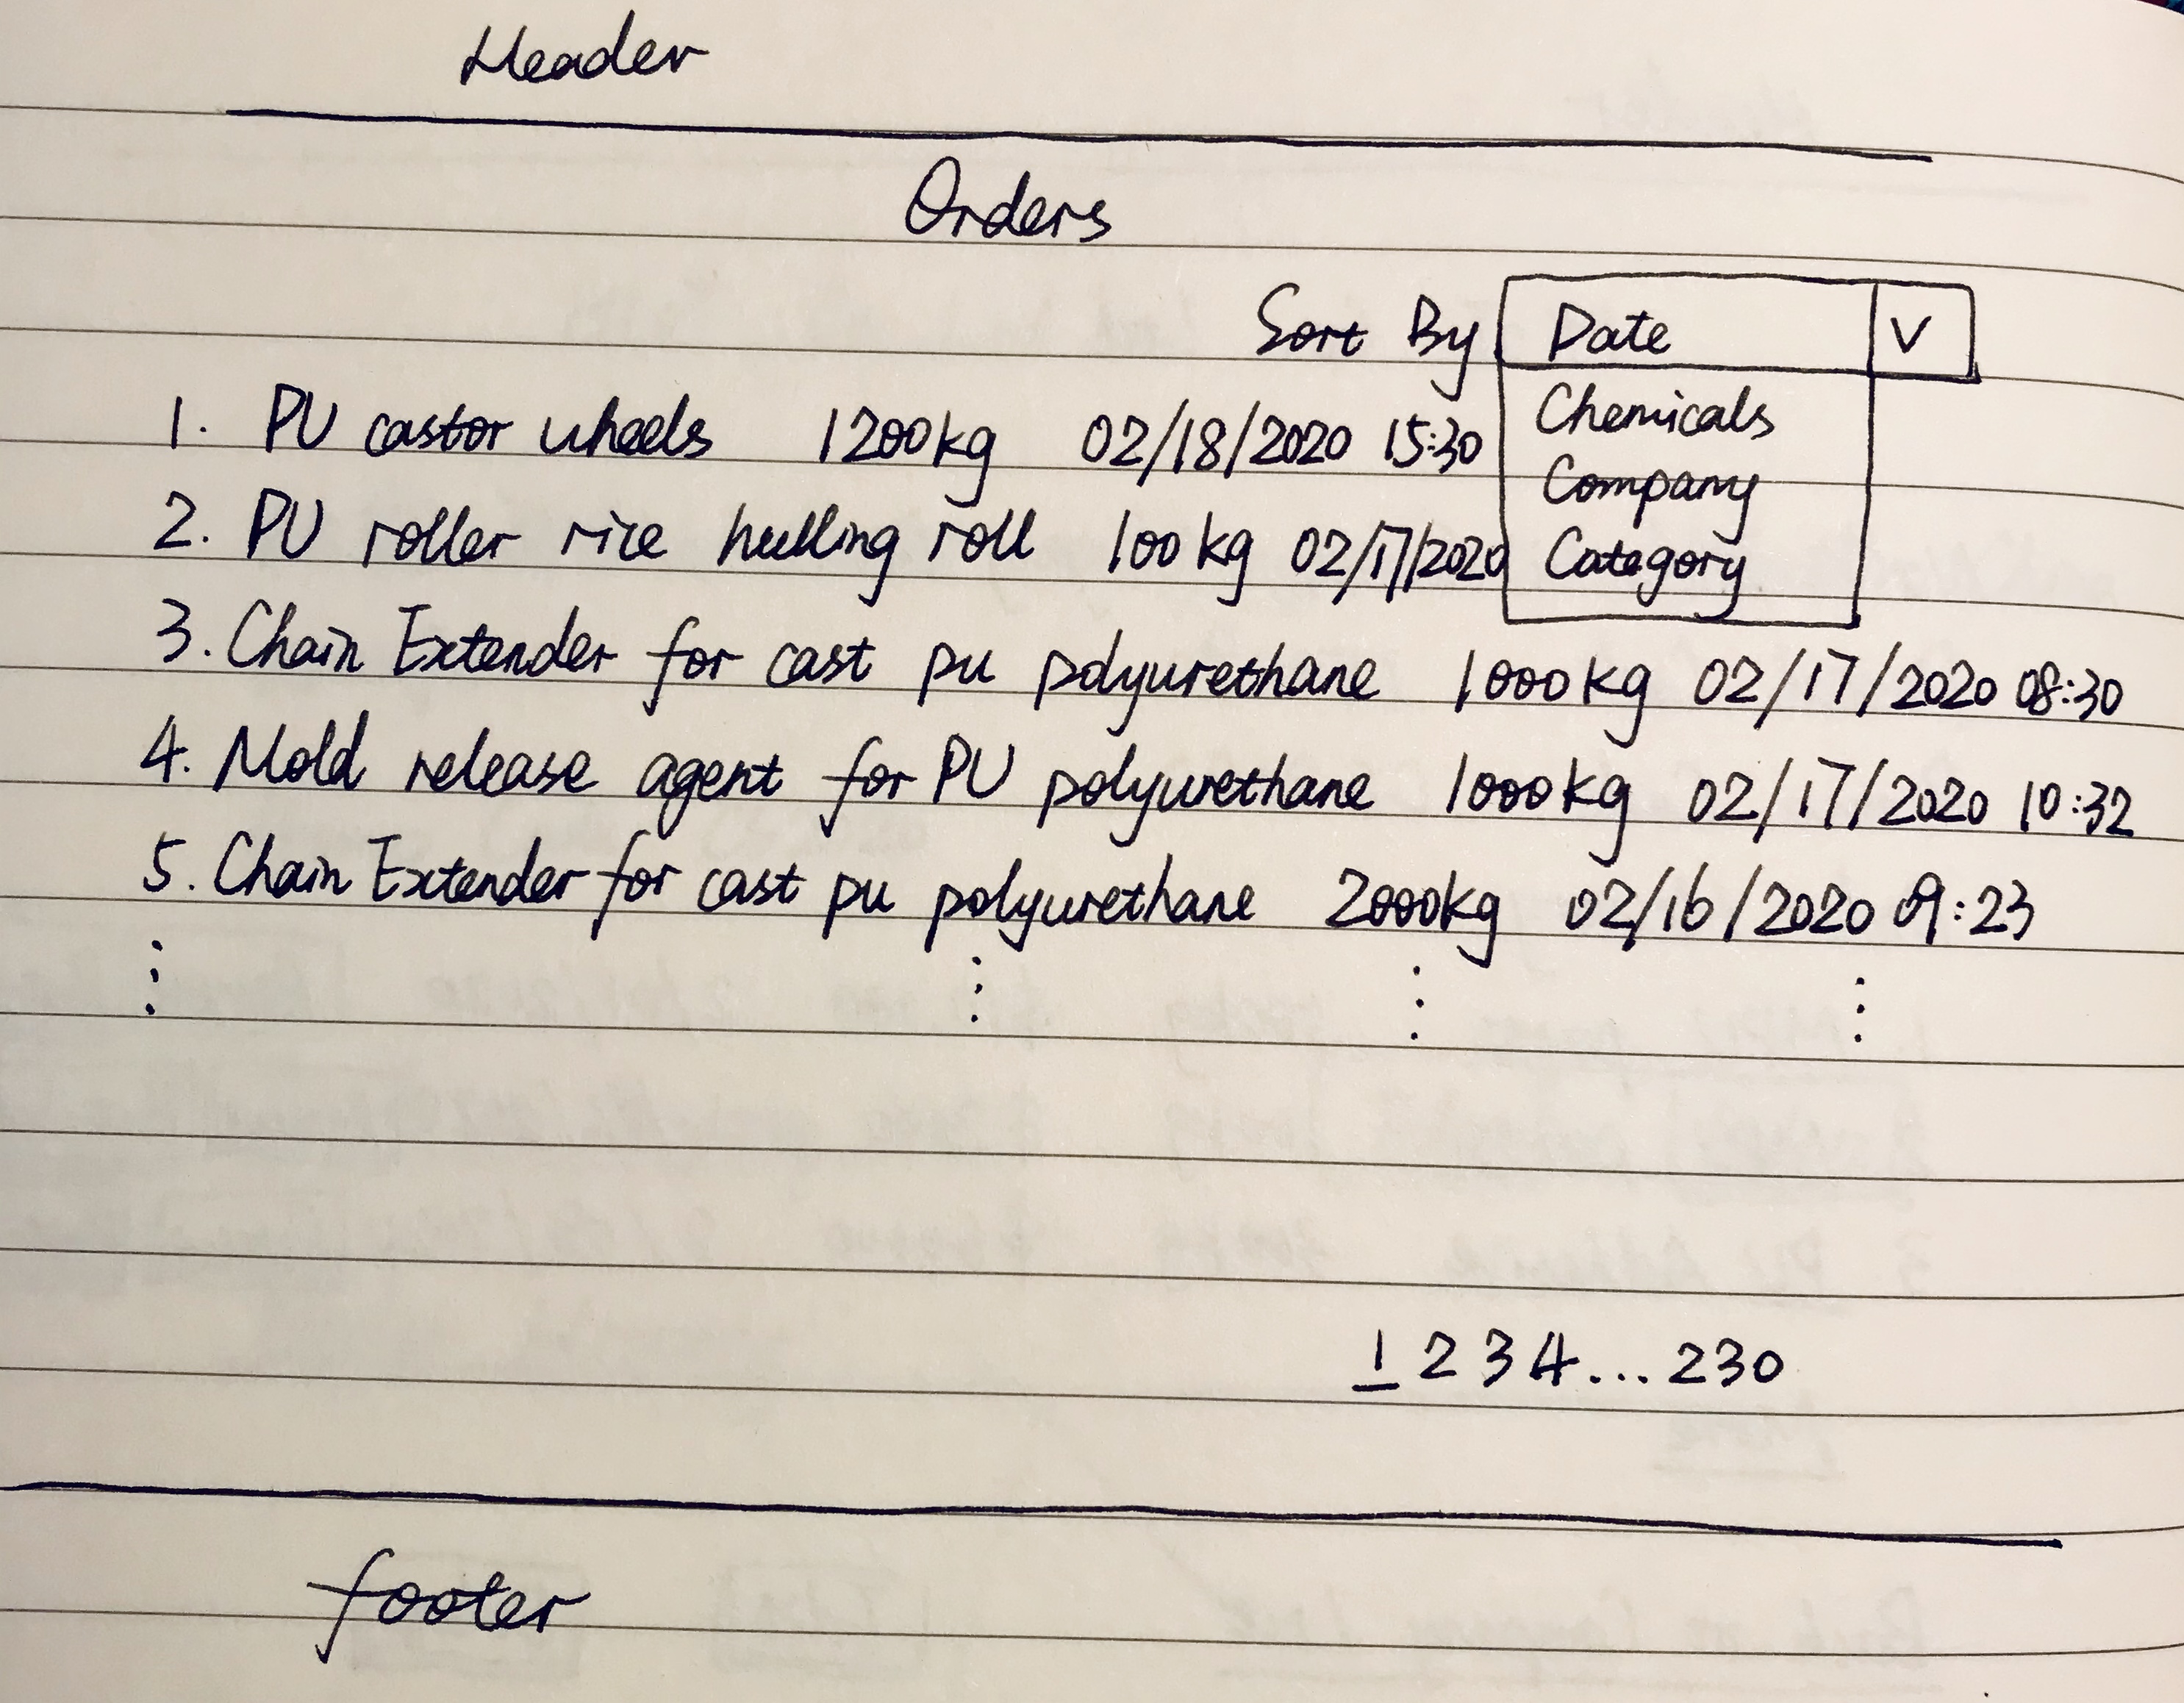 Header
Orders
Sort By Date V
Chemicals
Company
Category
1. PU castor wheels 1200kg 02/18/2020 15:30
2. PU roller rice hulling roll 100kg 02/17/2020
3. Chain Extender for cast pu polyurethane 1000kg 02/17/2020 08:30
4. Mold release agent for PU polyurethane 1000kg 02/17/2020 10:32
5. Chain Extender for cast pu polyurethane 2000kg 02/16/2020 09:23
1 2 3 4 ... 230
footer